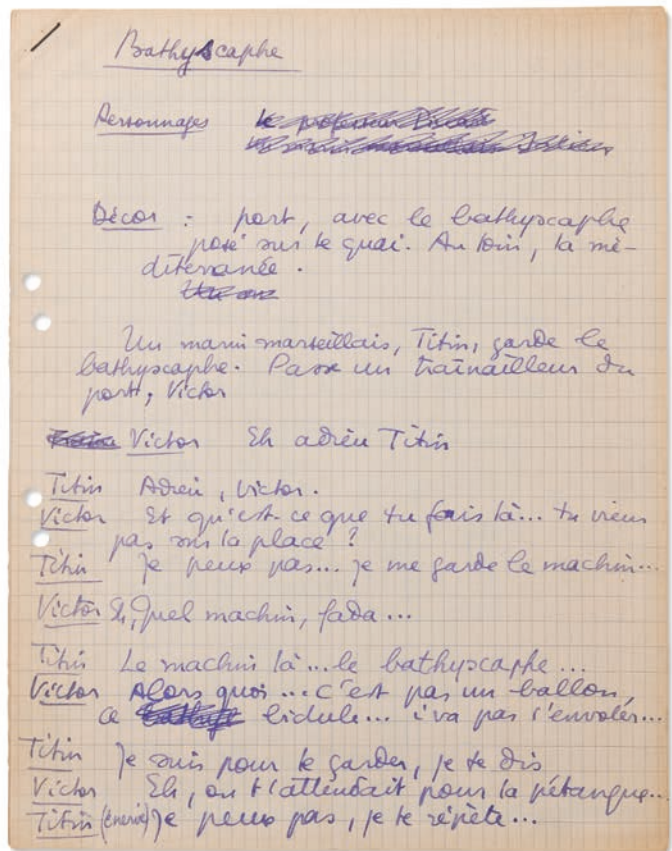 /
Bathyscaphe
Personnages le professeur
Décor : port, avec le bathyscaphe
posé sur le quai. Au loin, la mé-
diterranée.
Un marin marseillais, Titin, garde le
bathyscaphe. Passe un traînailleur du
port, Victor
Victor Eh adieu Titin
Titin Adieu, Victor.
Victor Et qu'est-ce que tu fais là... tu viens
pas sur la place ?
Titin Je peux pas... je me garde le machin...
Victor Eh, Quel machin, fada...
Titin Le machin là... le bathyscaphe...
Victor Alors quoi... c'est pas un ballon,
ce bidule... i va pas s'envoler...
Titin Je suis pour le garder, je te dis
Victor Eh, on t'attendait pour la pétanque...
Titin (énervé) Je peux pas, je te répète...